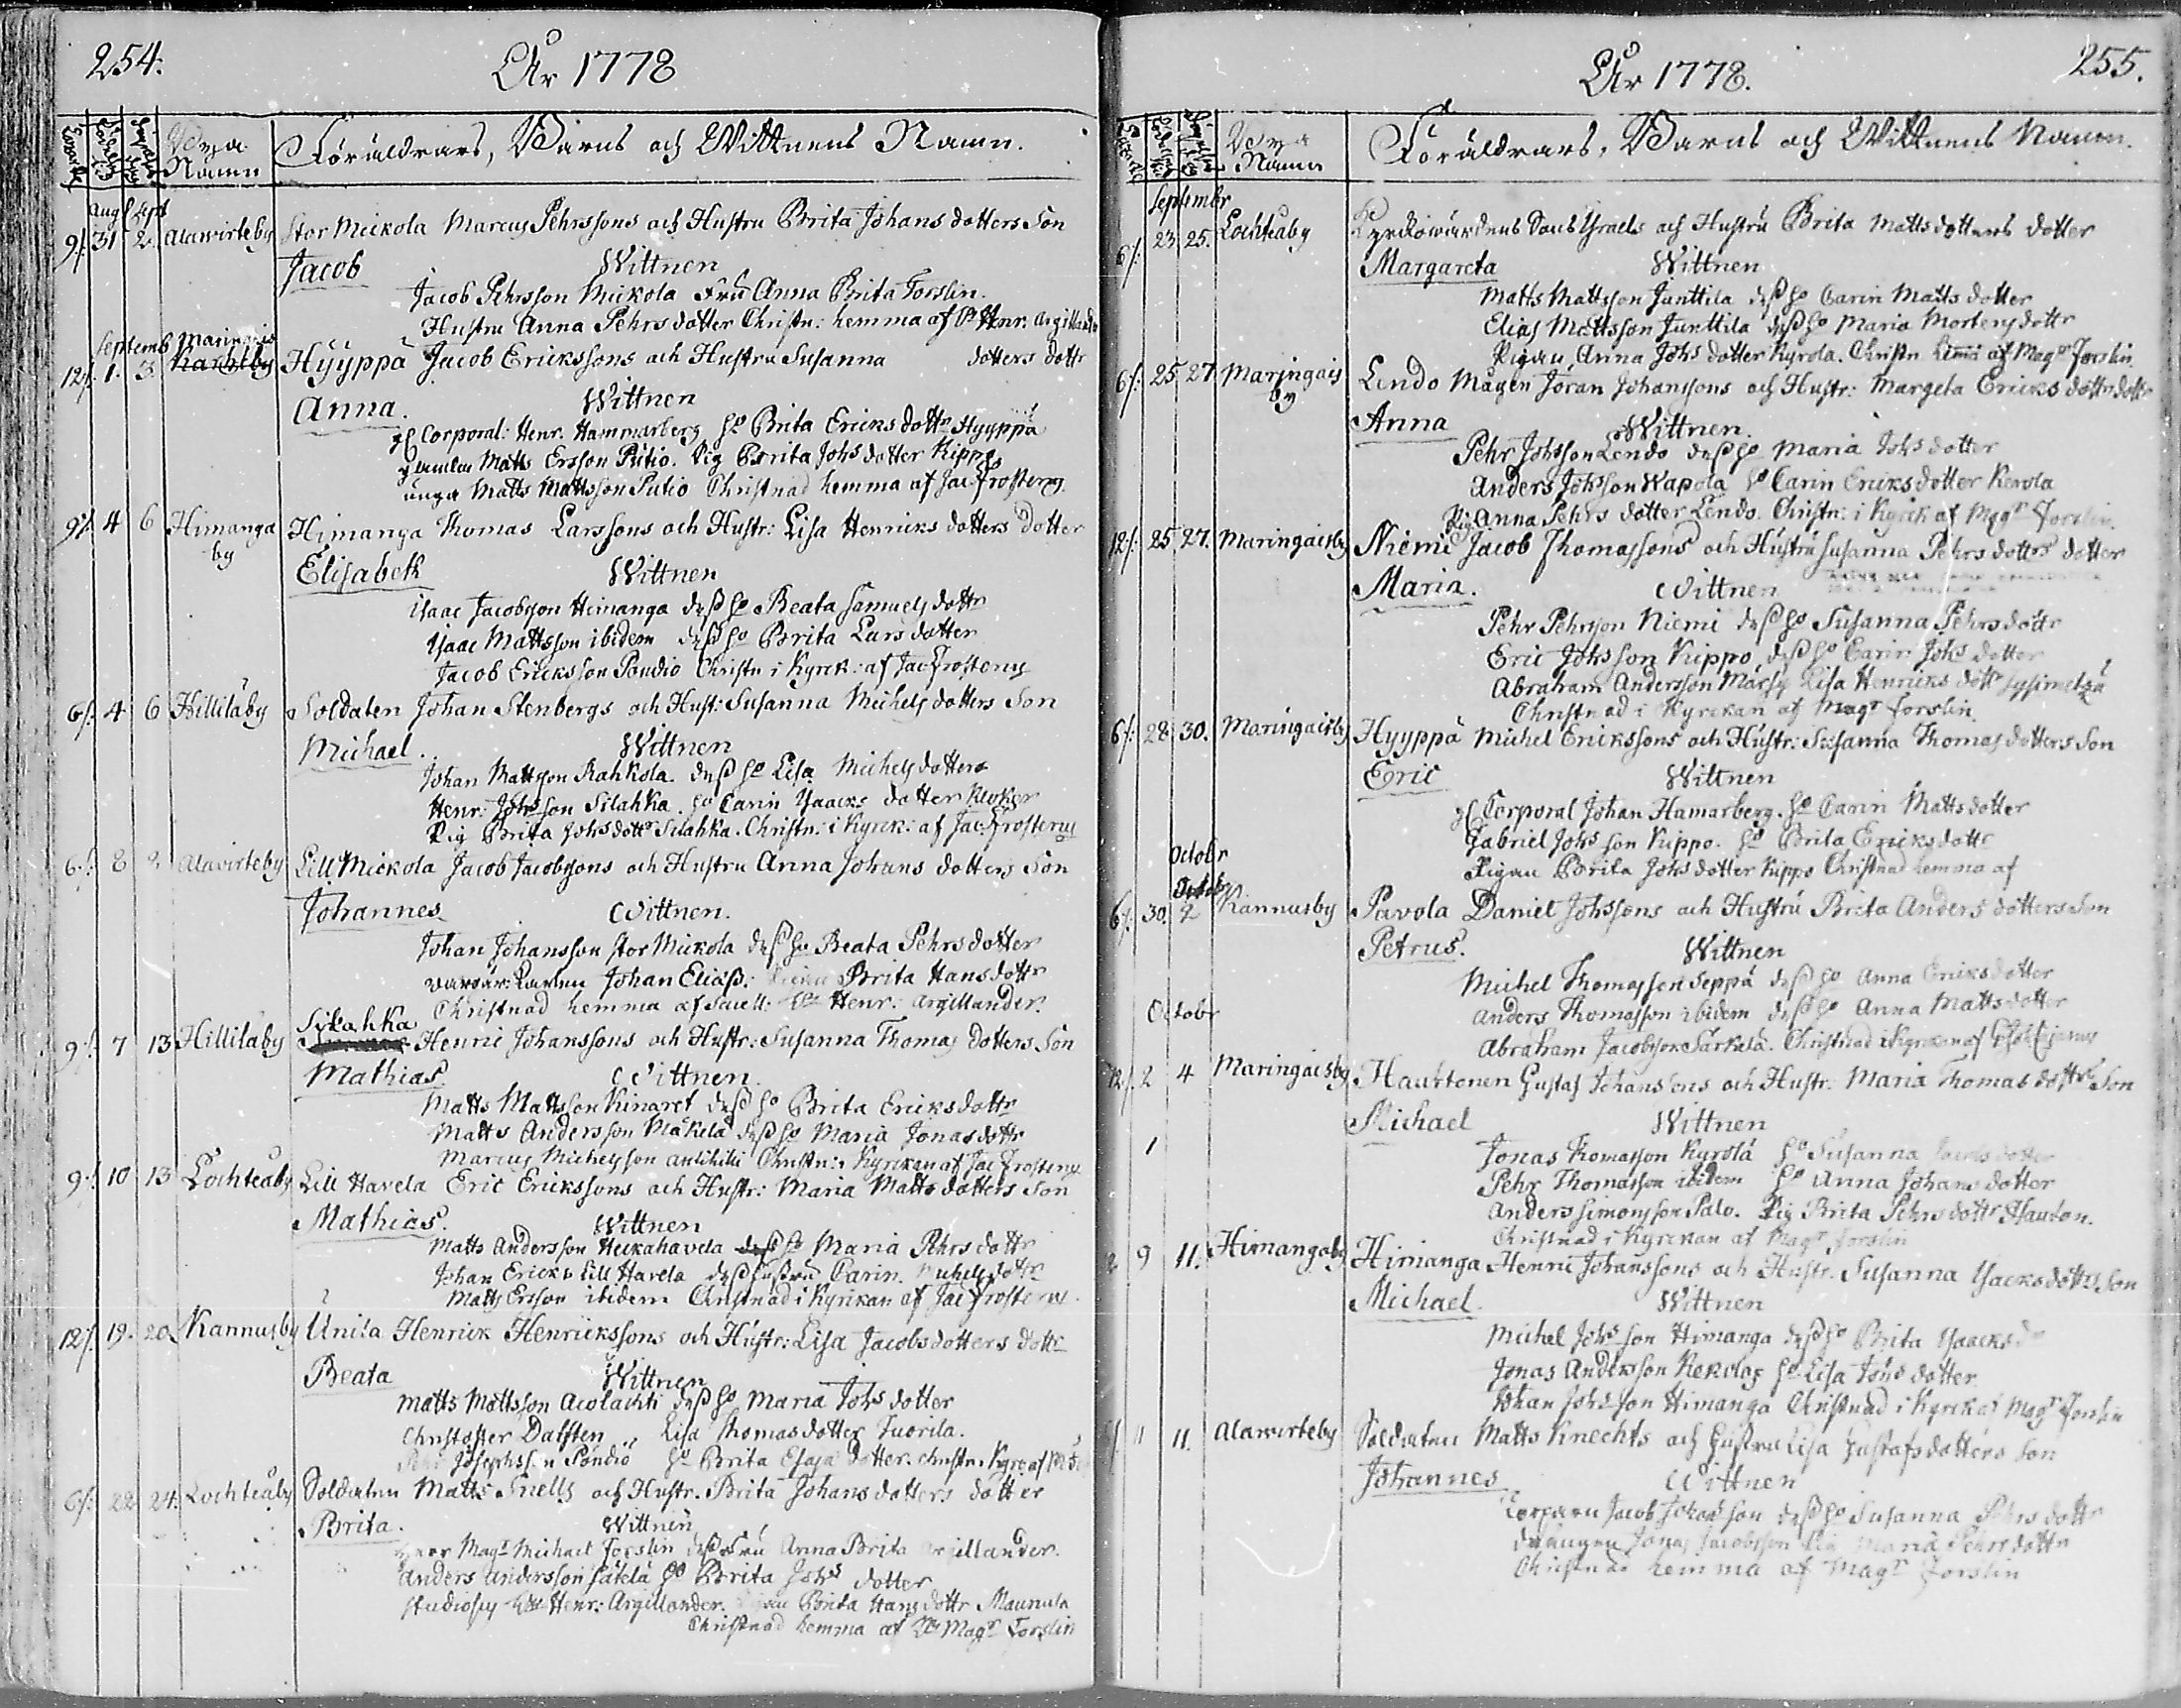 254.
År 1778
Bya Namn
Föräldrars, Barns och Wittnens Namn.
Aug Sept
9/. 31 2. Alawirteby Stor Mickola Marcus Pehrssons och Hustru Brita Johans dotters Son
Jacob Wittnen
Jacob Pehrsson Mickola Fru Anna Brita Forslin.
Hustru Anna Pehrs dotter Christn: hemma af Hr Henr. Argillander
Septemb Maringais
12/. 1. 3. Hyyppä Jacob Erickssons och Hustru Susanna dotters dottr
Anna. Wittnen
Corporal: Henr. Hammarberg ho Brita Ericks dottr Hyyppä
gamlen Matts Ersson Piitio. Pig Brita Johs dotter Kippo
unga Matts Mattsson Piitio Christnad hemma af Jac Frosterus
9/. 4 6 Himanga by Himanga Thomas Larssons och Hustr: Lisa Henricks dotters Dotter
Elisabeth Wittnen
Isaac Jacobsson Himanga dess ho Beata Samuels dottr
Isaac Mattsson ibidem dess ho Brita Lars dotter
Jacob Ericksson Pöndiö Christn i Kyrk: af Jac Frosterus
6/. 4 6 Hillilaby Soldaten Johan Stenbergs och Hust: Susanna Michels dotters Son
Michael. Wittnen
Johan Mattsson Rahkola. dess ho Lisa Michels dotter
Henr: Johsson Silahka. ho Carin Isaacks dotter
Pig Brita Johs dottr Silahka. Christn: i Kyrk: af Jac: Frosterus
6/. 8 Alawirteby Lill Mickola Jacob Jacobssons och Hustru Anna Johans dotters Son
Johannes Wittnen.
Johan Johansson stor Mickola dess ho Beata Pehrs dotter
Johan Eliass: Brita Hans dottr
Christnad hemma af Henr: Argillander.
9/. 7 13 Hillilaby Silahka Henric Johanssons och Hustr: Susanna Thomas dotters Son
Mathias. Wittnen.
Matts Mattsson Kinaret dess ho Brita Ericks dottr
Matts Andersson Mäkelä dess ho Maria Jonas dottr
Marcus Michelsson Christn: i Kyrckan af Jac Frosterus
9/. 10 13 Lochteåby Lill Havela Eric Erickssons och Hustr: Maria Matts dotters Son
Mathias. Wittnen
Matts Andersson Heickahavela ho Maria Pehrs dottr
Johan Ericks Lill Havela dess hustru Carin Michels dottr
Matts Ersson ibidem Christnad i Kyrckan af Jac Frosterus.
12/. 19. 20. Kannusby Unila Henrick Henrickssons och Hustr: Lisa Jacobsdotters dottr
Beata Wittnen
Matts Mattsson dess ho Maria Johs dotter
Christoffer Dalsten Lisa Thomasdotter Tuorila.
Josephsson Pöndiö ho Brita Esaja dotter. Christn. i Kyrc af
6/. 22 24. Lochteåby Soldaten Matts Snells och Hustr. Brita Johans dotters dotter
Brita. Wittnen
Magr Michael Forslin dess Fru Anna Brita Argillander.
Anders Andersson ho Brita Johs dotter
Studiosus Henr: Argillander. Pigan Brita Hans dottr Maunula
Christnad hemma af Hr Magr Forslin
255.
År 1778.
Bya Namn
Föräldrars, Barns och Wittnens Namn.
Septembr
6/. 23. 25. Lochteåby Kyrckowärdens Israels och Hustru Brita Matts dotters dotter
Margareta Wittnen
Matts Mattsson Junttila dess ho Carin Matts dotter
Elias Mattsson Junttila dess ho Maria Mortens dottr
Pigan Anna Johs dotter Kyrola. Christn hemma af Magr Forslin
6/. 25 27 Maringais by Lendo Mågen Jöran Johanssons och Hustr: Margeta Ericks dottrs dottr
Anna Wittnen.
Pehr Johsson Lendo dess ho Maria Johs dotter
Anders Johsson Wapola ho Carin Ericks dotter Kerola
Pig Anna Pehrs dotter Lendo. Christn: i Kyrck af Magr Forslin.
12/. 25 27. Maringaisby Niemi Jacob Thomassons och Hustru Susanna Pehrs dotters dotter
Maria. Wittnen
Pehr Pehrsson Niemi dess ho Susanna Pehrs dottr
Eric Johsson Kippo dess ho Carin Johs dotter
Abraham Andersson Lisa Henricks dottr
Christnad i Kyrckan af Magr Forslin.
6/. 28 30. Maringaisby Hyyppä Michel Erickssons och Hustr: Susanna Thomas dotters Son
Eric Wittnen
Corporal Johan Hamarberg. ho Carin Matts dotter
Gabriel Johsson Kippo. ho Brita Ericks dottr
Pigan Brita Johs dotter Kippo Christnad hemma af
Octobr
6/. 30. 2 Kannusby Pavola Daniel Johssons och Hustru Brita Anders dotters Son
Petrus. Wittnen
Michel Thomasson Seppä dess ho Anna Ericks dotter
Anders Thomasson ibidem dess ho Anna Matts dotter
Abraham Jacobsson Särkelä. Christnad i Kyrckan af
Octobr
12/. 2 4 Maringaisby Haurtonen Gustaf Johanssons och Hustr: Maria Thomas dottrs Son
Michael Wittnen
Jonas Thomasson Kyrölä ho Susanna dotter
Pehr Thomasson ibidem ho Anna Johans dotter
Anders Simonsson Palo. Pig Brita Pehrs dottr
Christnad i Kyrckan af Magr Forslin
9 11. Himangaby Himanga Henric Johanssons och Hustr. Susanna Isacks dotters Son
Michael. Wittnen
Michel Johsson Himanga dess ho Brita Isaacks
Jonas Andersson ho Lisa Johs dotter
Johan Johsson Himanga Christnad i Kyrck af Magr Forslin
11 11. Alawirteby Soldaten Matts Knechts och Hustru Lisa Gustafs dotters Son
Johannes Wittnen
Jacob Johansson dess ho Susanna Pehrs dottr
drängen Jonas Jacobsson Pig Maria Pehrs dottr
Christnad hemma af Magr Forslin